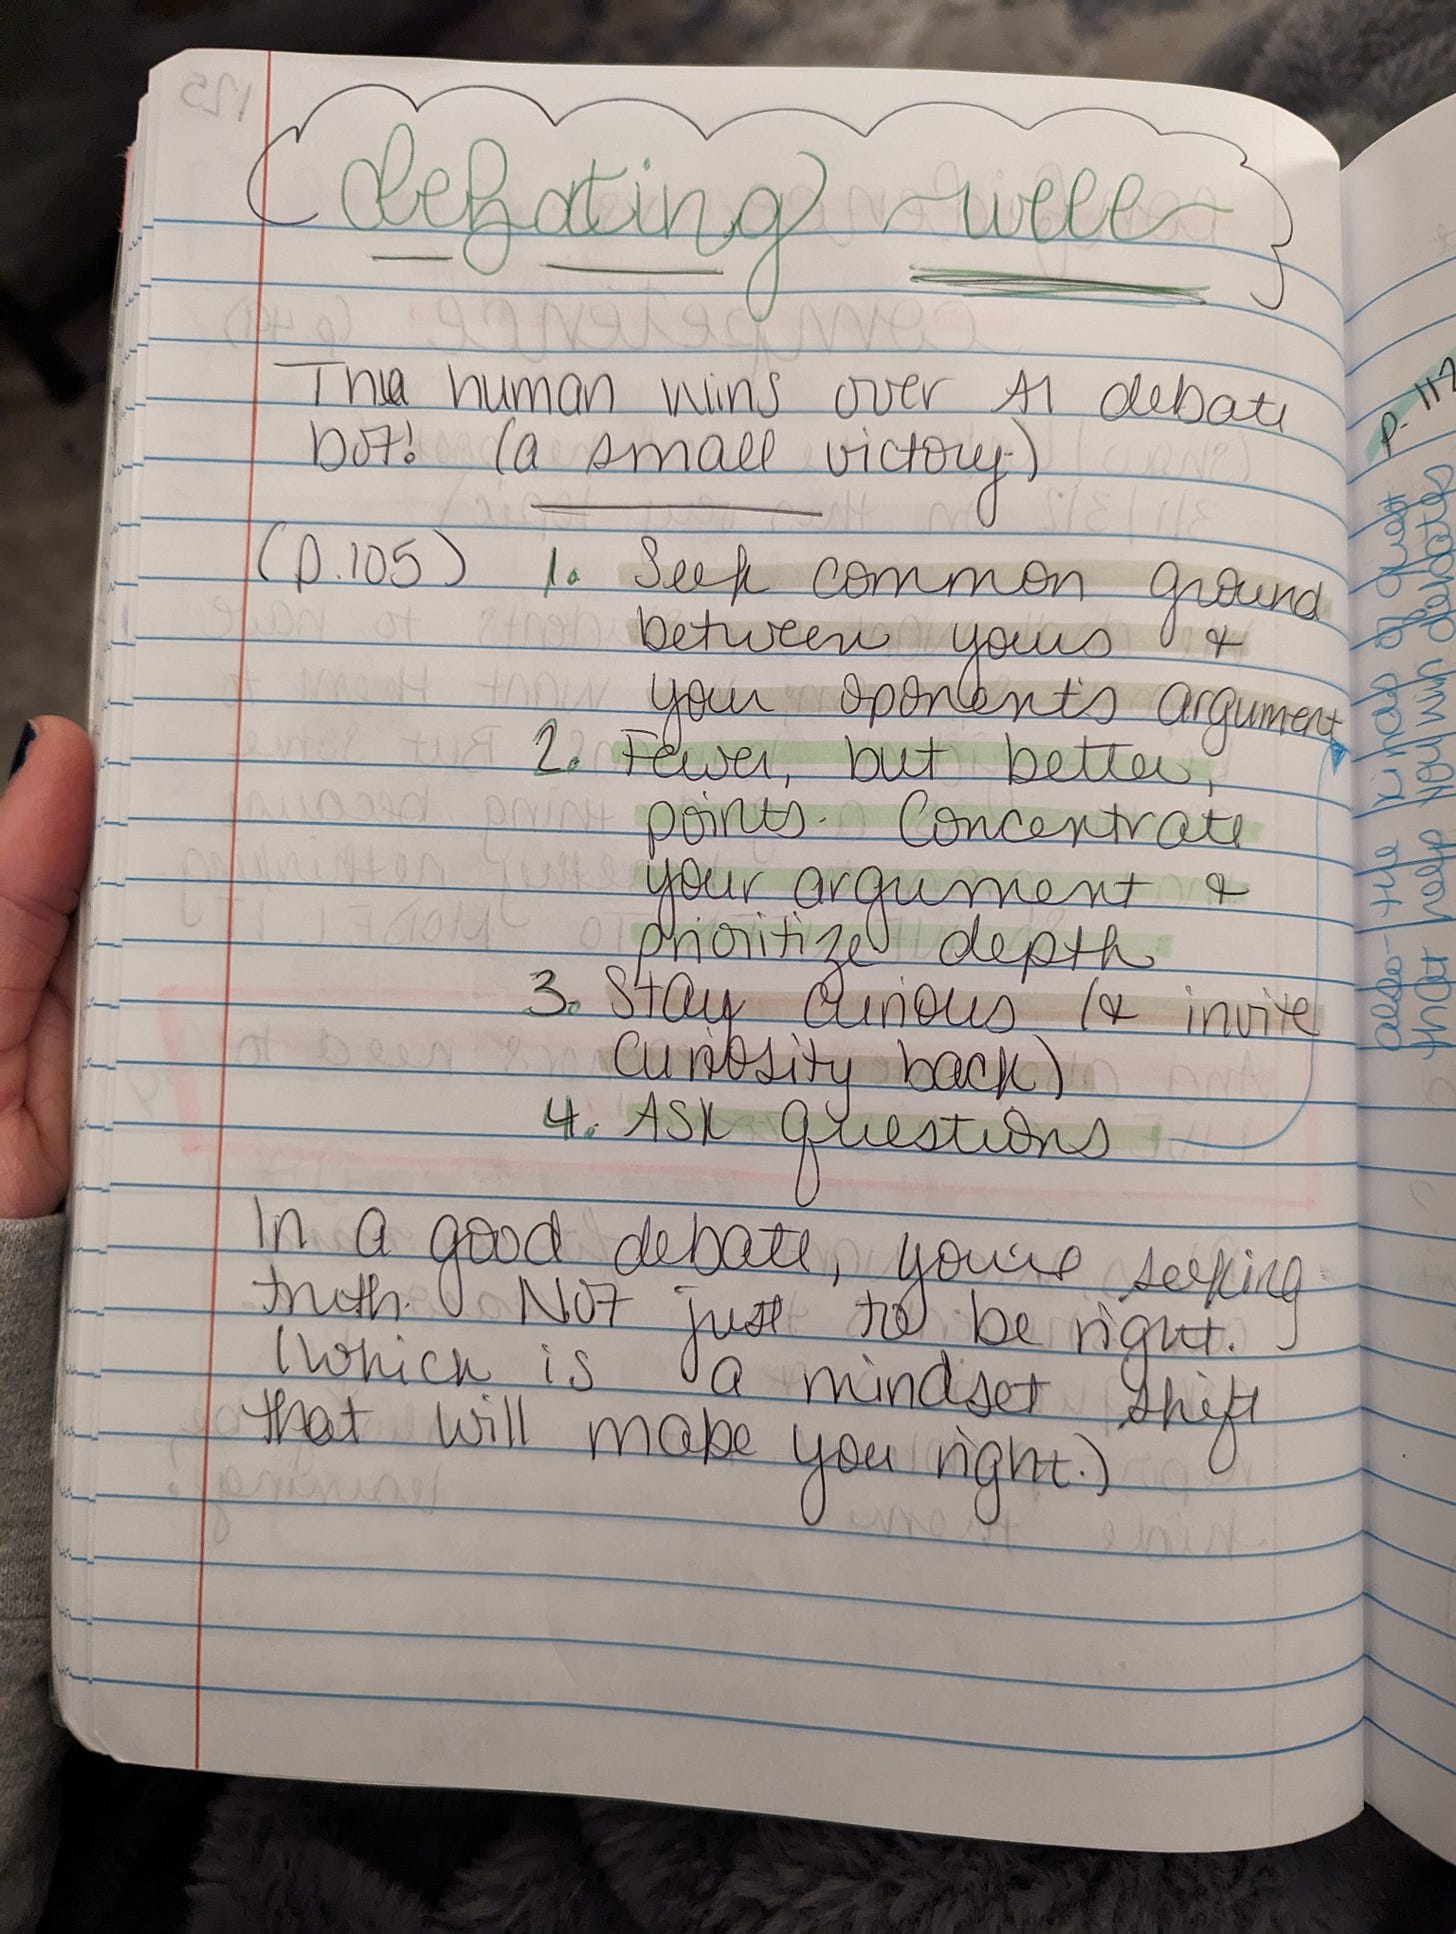 debating ~well~
The human wins over AI debate
bot! (a small victory)
(p.105) 1. Seek common ground
between yours &
your oponent's argument
2. Fewer, but better,
points. Concentrate
your argument &
prioritize depth
3. Stay curious (& invite
curiosity back)
4. Ask questions
In a good debate, you're seeking
truth. NOT just to be right.
(which is a mindset shift
that will make you right.)
p. 117
also- the kinds of quest
that help you win debates